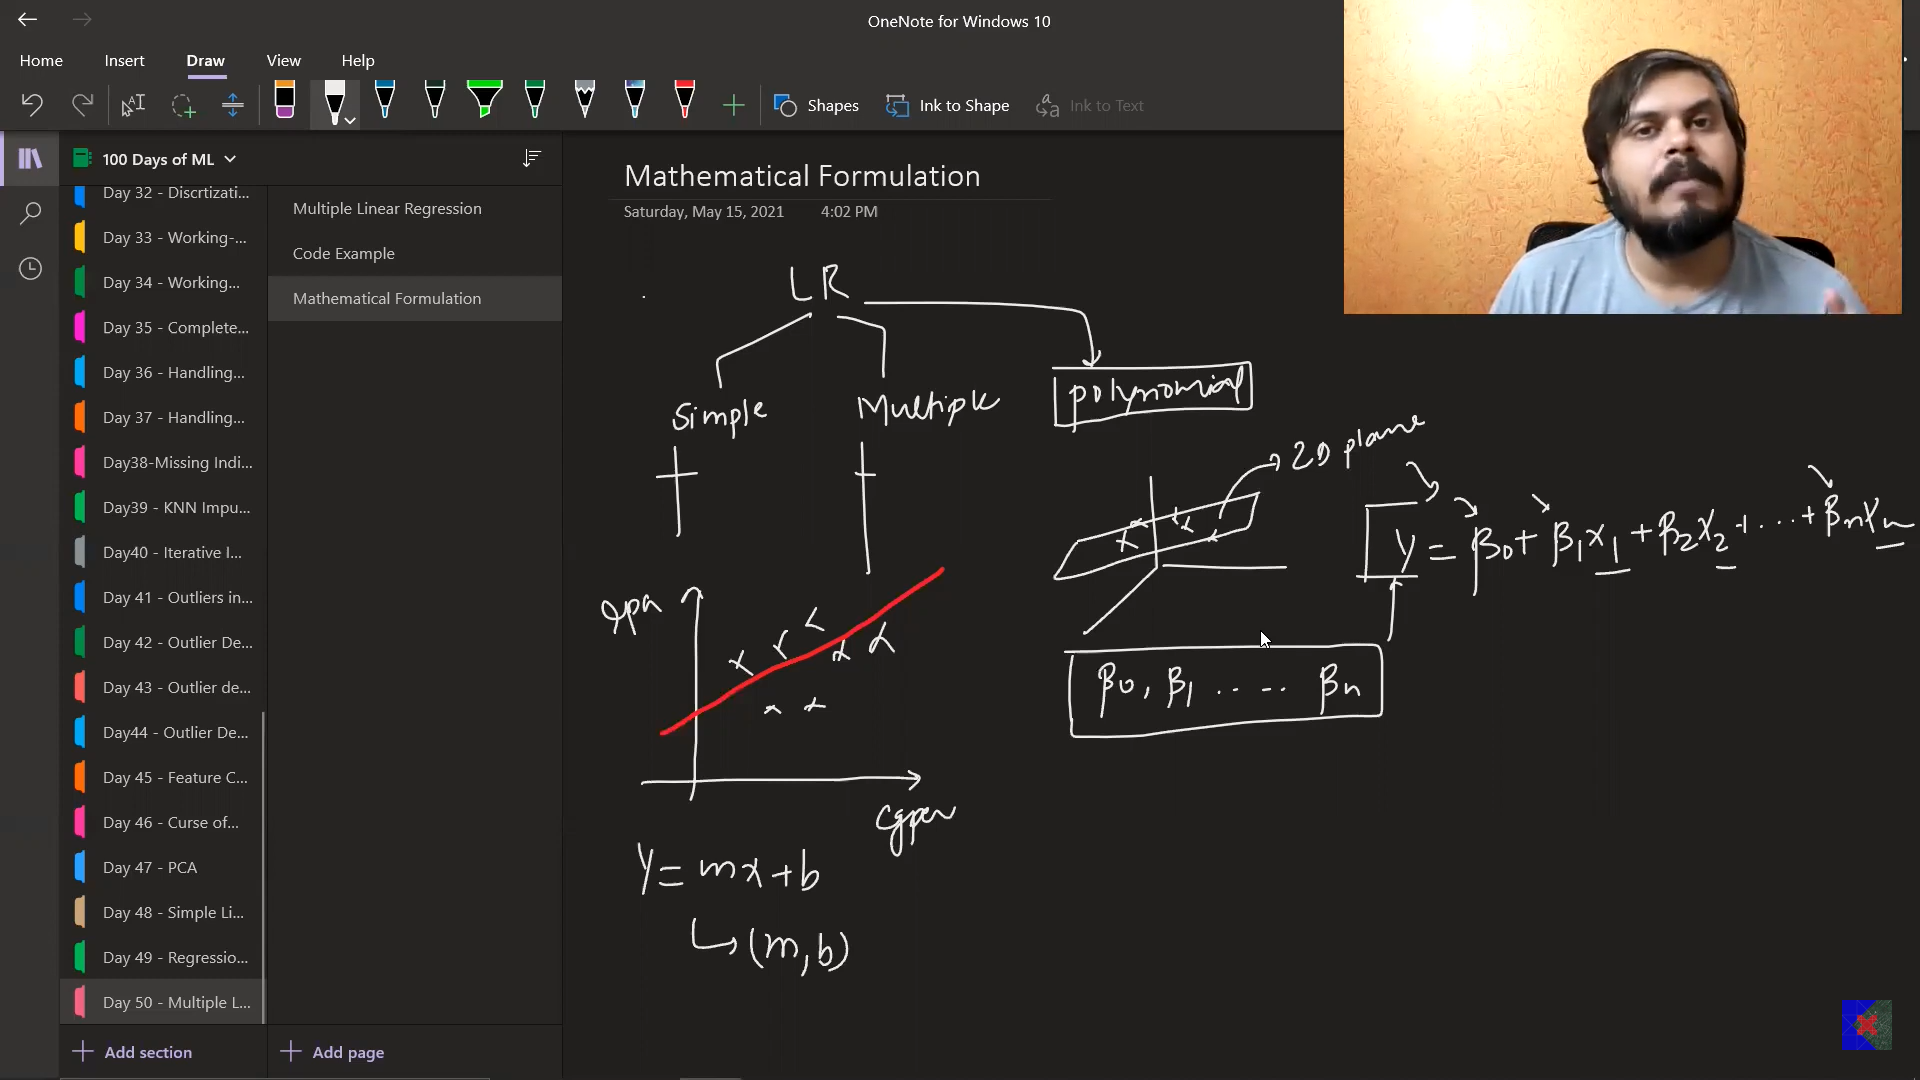 OneNote for Windows 10
Home Insert Draw View Help
Shapes Ink to Shape Ink to Text
100 Days of ML
Day 32 - Discrtizati...
Day 33 - Working-...
Day 34 - Working...
Day 35 - Complete...
Day 36 - Handling...
Day 37 - Handling...
Day38-Missing Indi...
Day39 - KNN Impu...
Day40 - Iterative I...
Day 41 - Outliers in...
Day 42 - Outlier De...
Day 43 - Outlier de...
Day44 - Outlier De...
Day 45 - Feature C...
Day 46 - Curse of...
Day 47 - PCA
Day 48 - Simple Li...
Day 49 - Regressio...
Day 50 - Multiple L...
Add section
Multiple Linear Regression
Code Example
Mathematical Formulation
Add page
Mathematical Formulation
Saturday, May 15, 2021 4:02 PM
LR
Simple Multiple polynomial
2D plane
y = β0 + β1x1 + β2x2 + ... + βnxn
β0, β1 ..... βn
cgpa
y = mx + b
(m, b)